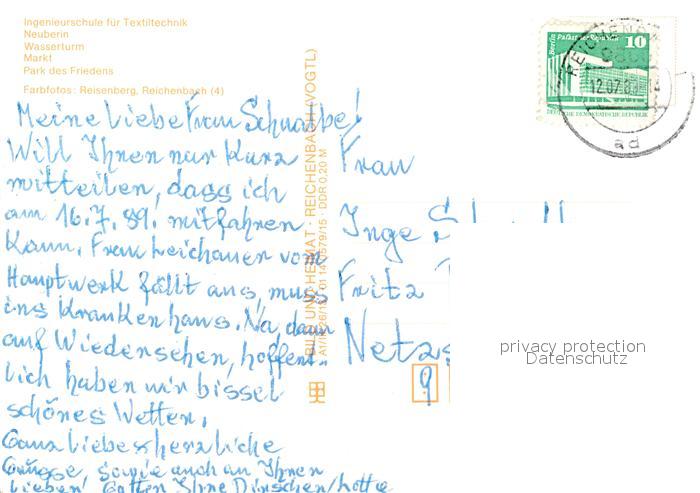 Ingenieurschule für Textiltechnik
Neuberin
Wasserturm
Markt
Park des Friedens
Farbfotos: Reisenberg, Reichenbach (4)
Meine liebe Frau Schwalbe!
Will Ihnen nur kurz
mitteilen, dass ich
am 16.7.89. mitfahren
kann. Frau Leichauer vom
Hauptwerk fällt aus, muss
ins Krankenhaus. Na, dann
auf Wiedersehen, hoffent-
lich haben wir bissel
schönes Wetter.
Ganz liebe herzliche
Grüsse sowie auch an Ihnen
lieben Gatten Ihre
BILD UND HEIMAT · REICHENBACH (VOGTL)
DDR 0,20 M
Berlin Palast der Republik
10
DEUTSCHE DEMOKRATISCHE REPUBLIK
12.07.8
ad
Frau
Inge
Fritz
9
privacy protection
Datenschutz